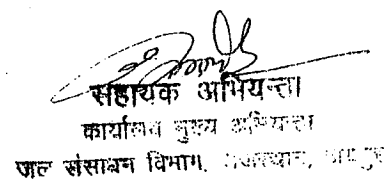 सहायक अभियन्ता
कार्यालय मुख्य अभियन्ता
जल संसाधन विभाग, राजस्थान, जयपुर